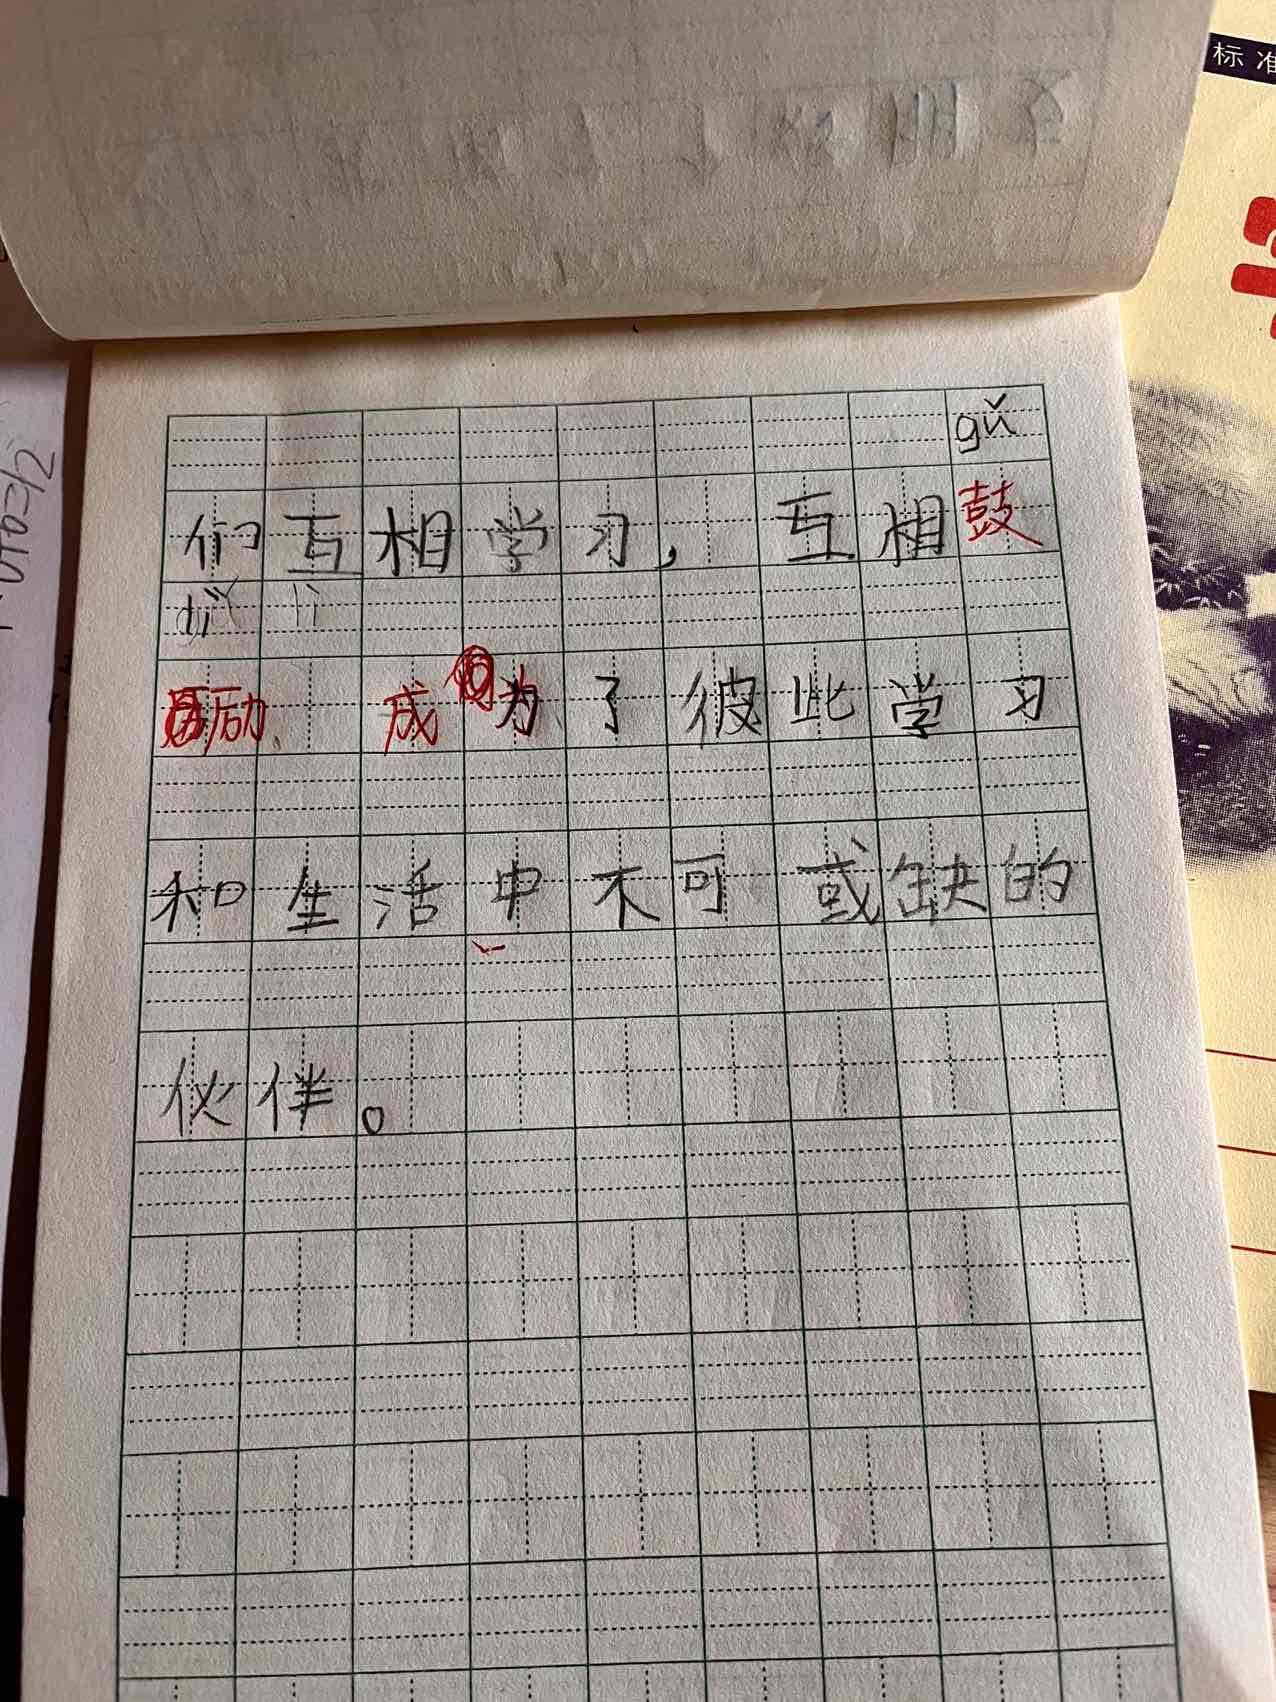 标准
gǔ
们互相学习，互相鼓
励 成为了彼此学习
和生活中不可或缺的
伙伴。